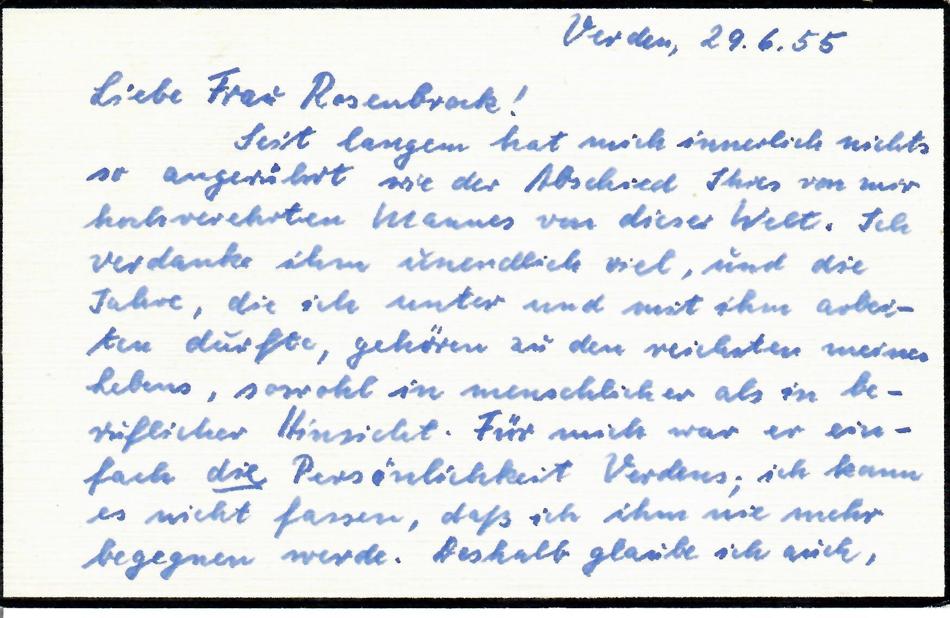 Verden, 29.6.55
Liebe Frau Rosenbrock!
Seit langem hat mich innerlich nichts
so angerührt wie der Abschied Ihres von mir
hochverehrten Mannes von dieser Welt. Ich
verdanke ihm unendlich viel, und die
Jahre, die ich unter und mit ihm arbei-
ten durfte, gehören zu den reichsten meines
Lebens, sowohl in menschlicher als in be-
ruflicher Hinsicht. Für mich war er ein-
fach die Persönlichkeit Verdens; ich kann
es nicht fassen, daß ich ihm nie mehr
begegnen werde. Deshalb glaube ich auch,